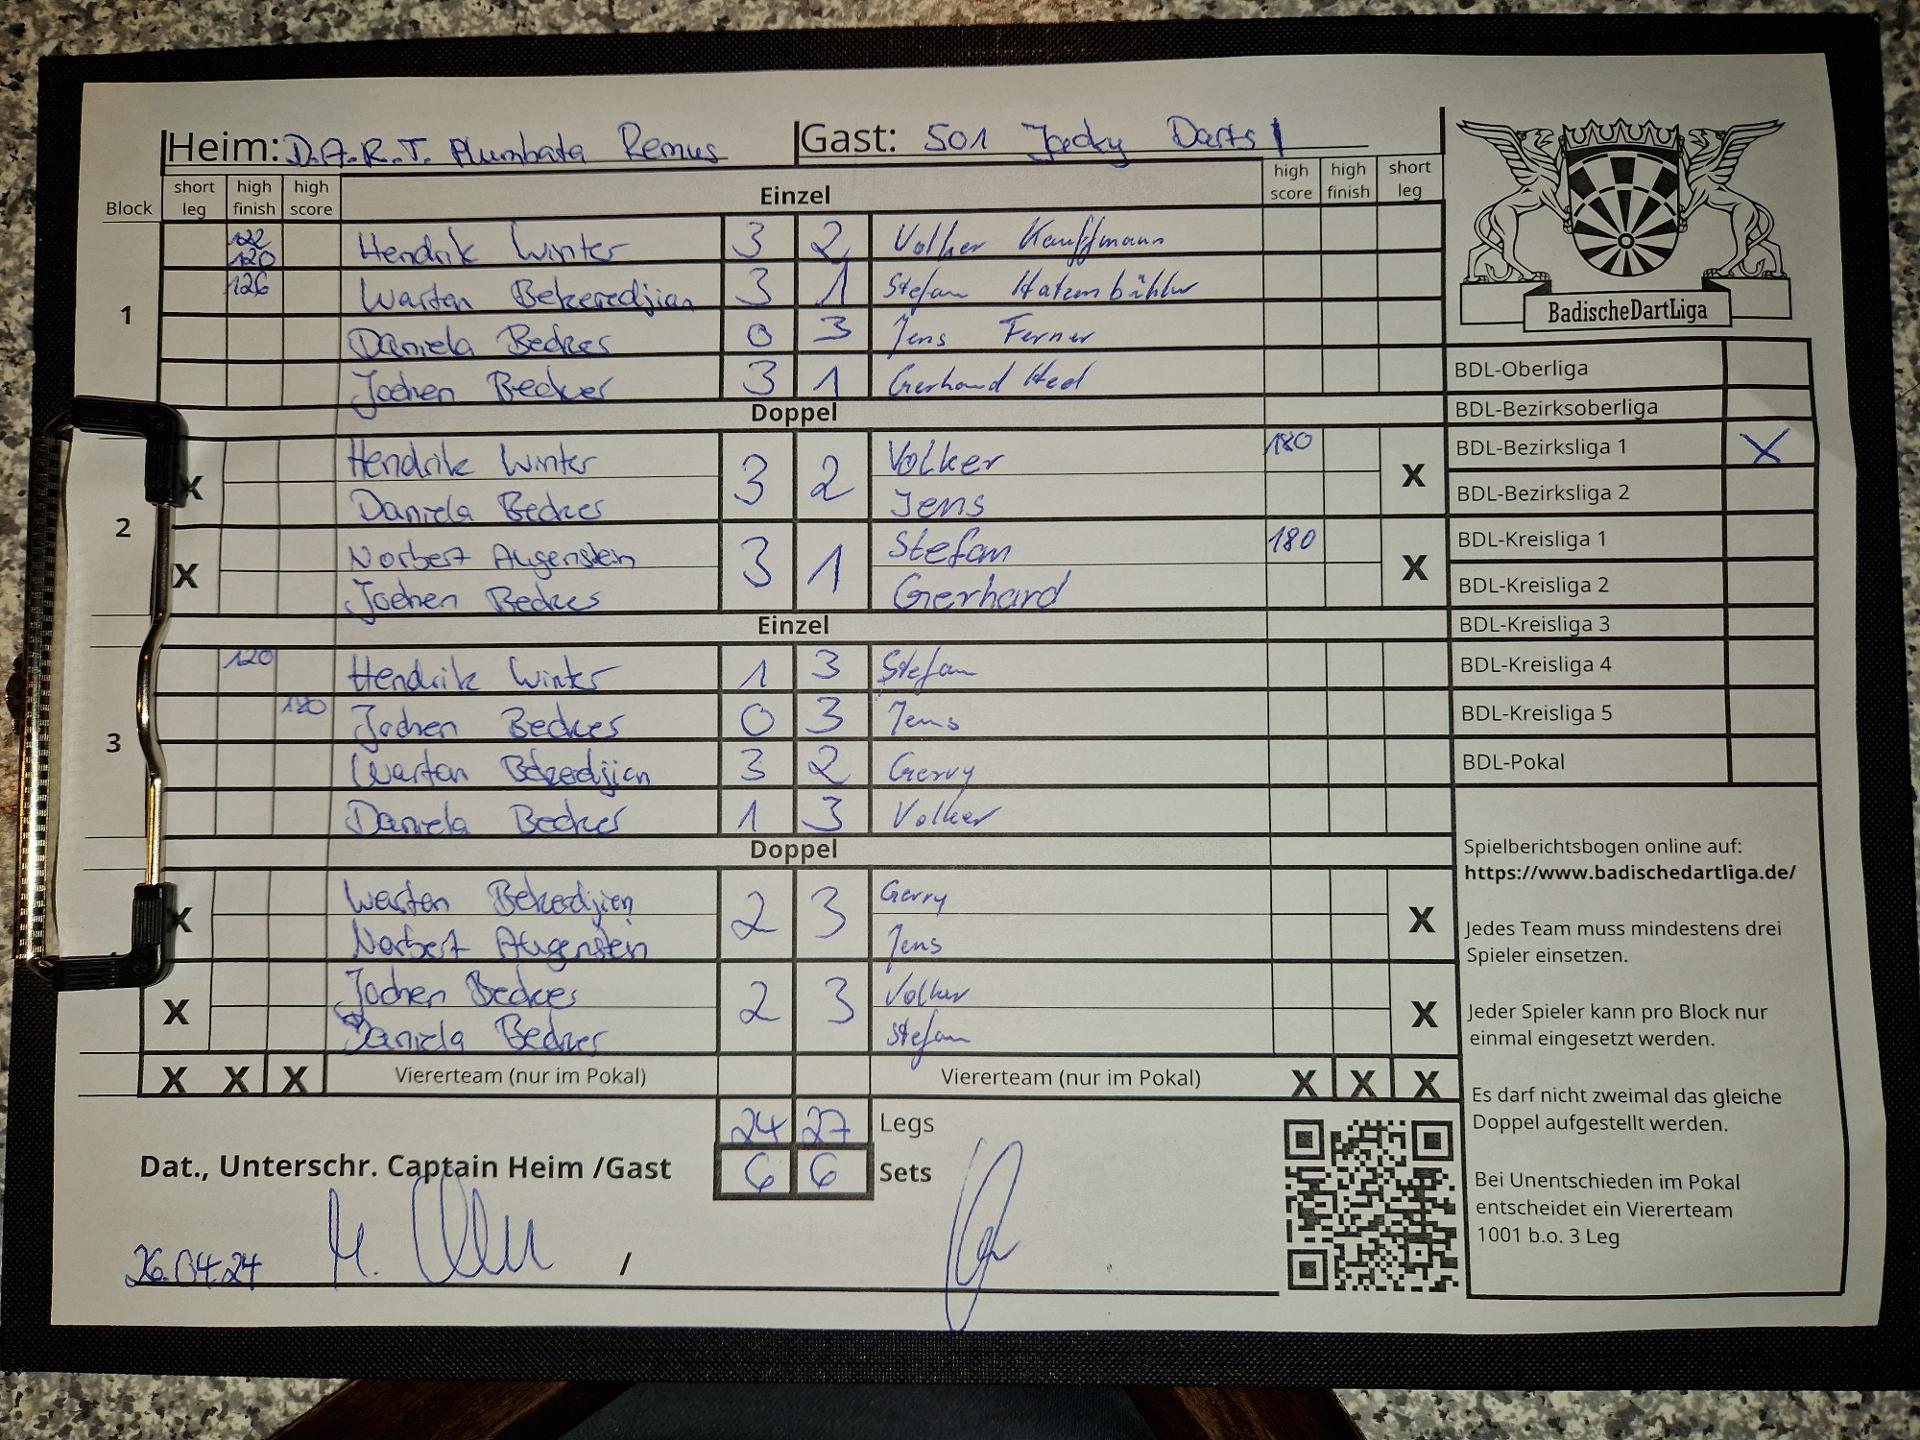 Heim: D.A.R.T. Plumbata Remus Gast: 501 Jacky Darts 1
Block short leg high finish high score Einzel high score high finish short leg
1
122 120 Hendrik Winter 3 2 Volker Kauffmann
126 Wartan Bekeredjian 3 1 Stefan Hatzenbühler
Daniela Becker 0 3 Jens Ferner
Jochen Becker 3 1 Gerhard
Doppel
2
X Hendrik Winter 3 2 Volker 180 X
Daniela Becker Jens
X Norbert Augenstein 3 1 Stefan 180 X
Jochen Becker Gerhard
Einzel
3
120 Hendrik Winter 1 3 Stefan
180 Jochen Becker 0 3 Jens
Wartan Bekedjian 3 2 Gerry
Daniela Becker 1 3 Volker
Doppel
X Wartan Bekedjien 2 3 Gerry X
Norbert Augenstein Jens
X Jochen Becker 2 3 Volker X
Daniela Becker Stefan
X X X Viererteam (nur im Pokal) Viererteam (nur im Pokal) X X X
24 27 Legs
Dat., Unterschr. Captain Heim /Gast 6 6 Sets
26.04.24 /
BadischeDartLiga
BDL-Oberliga
BDL-Bezirksoberliga
BDL-Bezirksliga 1 X
BDL-Bezirksliga 2
BDL-Kreisliga 1
BDL-Kreisliga 2
BDL-Kreisliga 3
BDL-Kreisliga 4
BDL-Kreisliga 5
BDL-Pokal
Spielberichtsbogen online auf:
https://www.badischedartliga.de/
Jedes Team muss mindestens drei
Spieler einsetzen.
Jeder Spieler kann pro Block nur
einmal eingesetzt werden.
Es darf nicht zweimal das gleiche
Doppel aufgestellt werden.
Bei Unentschieden im Pokal
entscheidet ein Viererteam
1001 b.o. 3 Leg